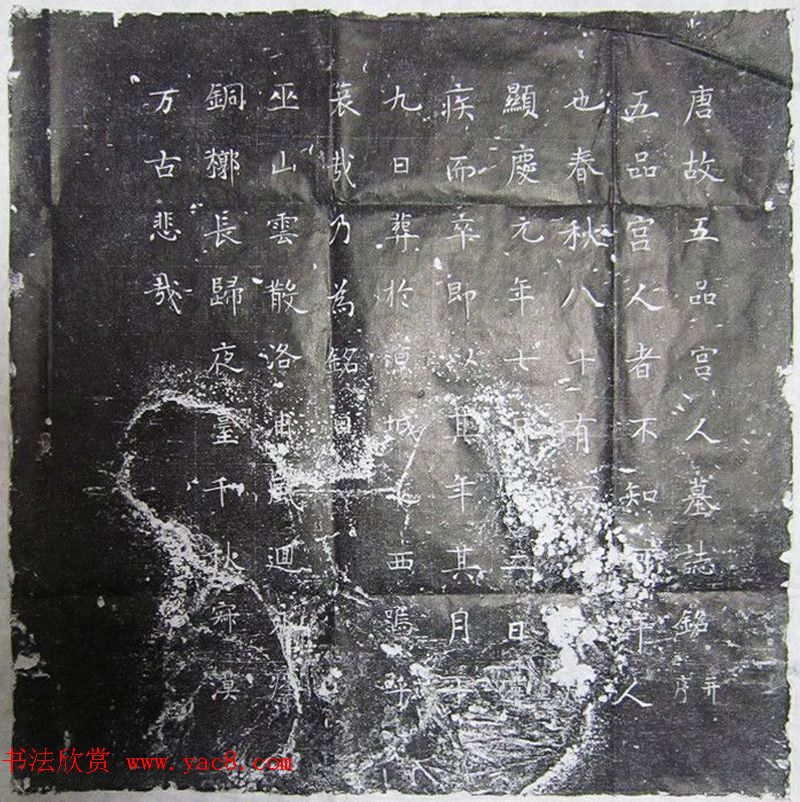 唐故五品宫人墓誌銘并序
五品宫人者不知人
也春秋八十有
顯慶元年七月二日
疾而卒即以其年其月
九日葬於城西嗚呼
哀哉乃為銘曰
巫山雲散洛浦風迴
銅槨長歸夜臺千秋寂漠
万古悲哉
书法欣赏 www.yac8.com